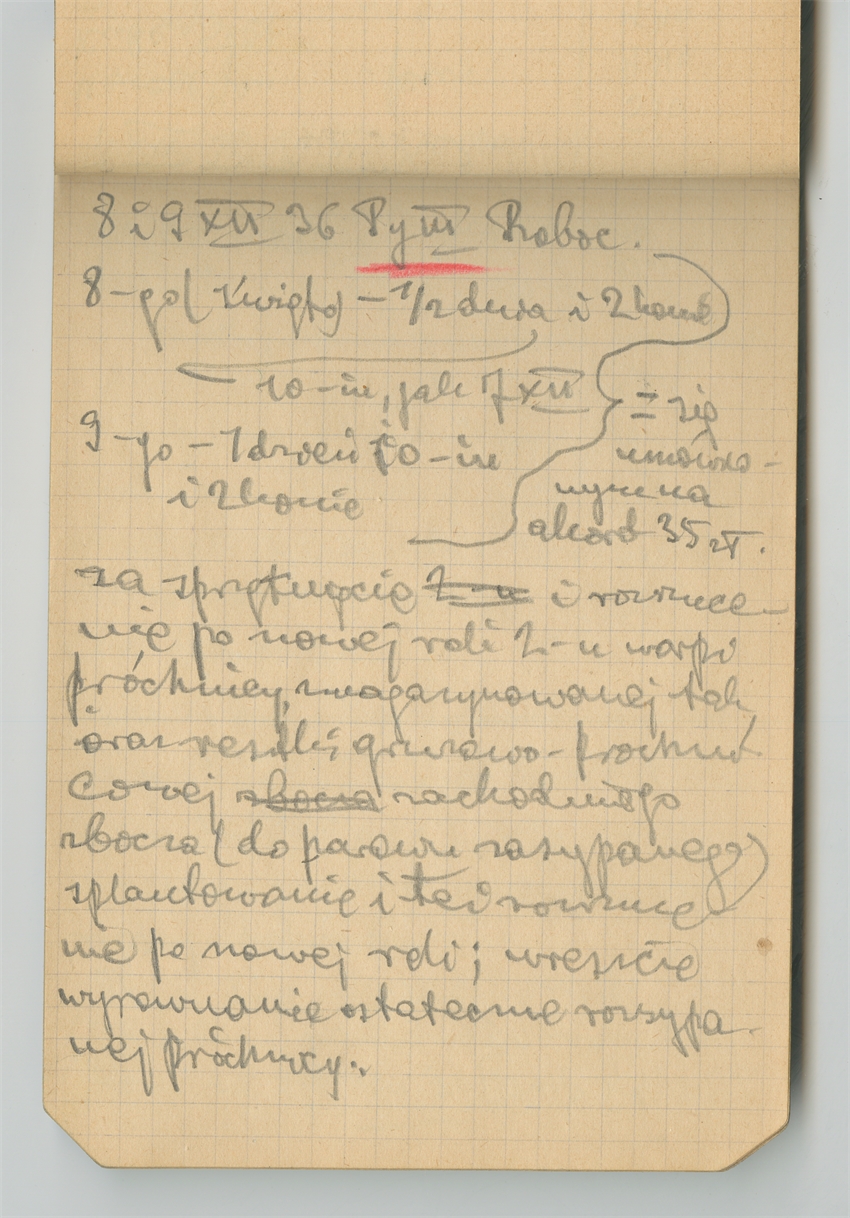 8 i 9 XII 36 Py III Roboc.
8-go (święto) – 1/2 dnia i 2 konie
10-iu, jak 7 XII
= zię
9-go – 1 dzień 10-iu
umówio-
i 2 konie
nym na
akord 35 zł.
za sprzątnięcie i rozrzuce-
nie po nowej roli 2-u warp
próchnicy, zmagazynowanej tak,
oraz resztki gruzowo-próchni-
cowej zbocza zachodniego
zbocza (do parowu zasypanego)
splantowanie i też rozrzuce-
nie po nowej roli; wreszcie
wyrównanie ostateczne rozsypa-
nej próchnicy.